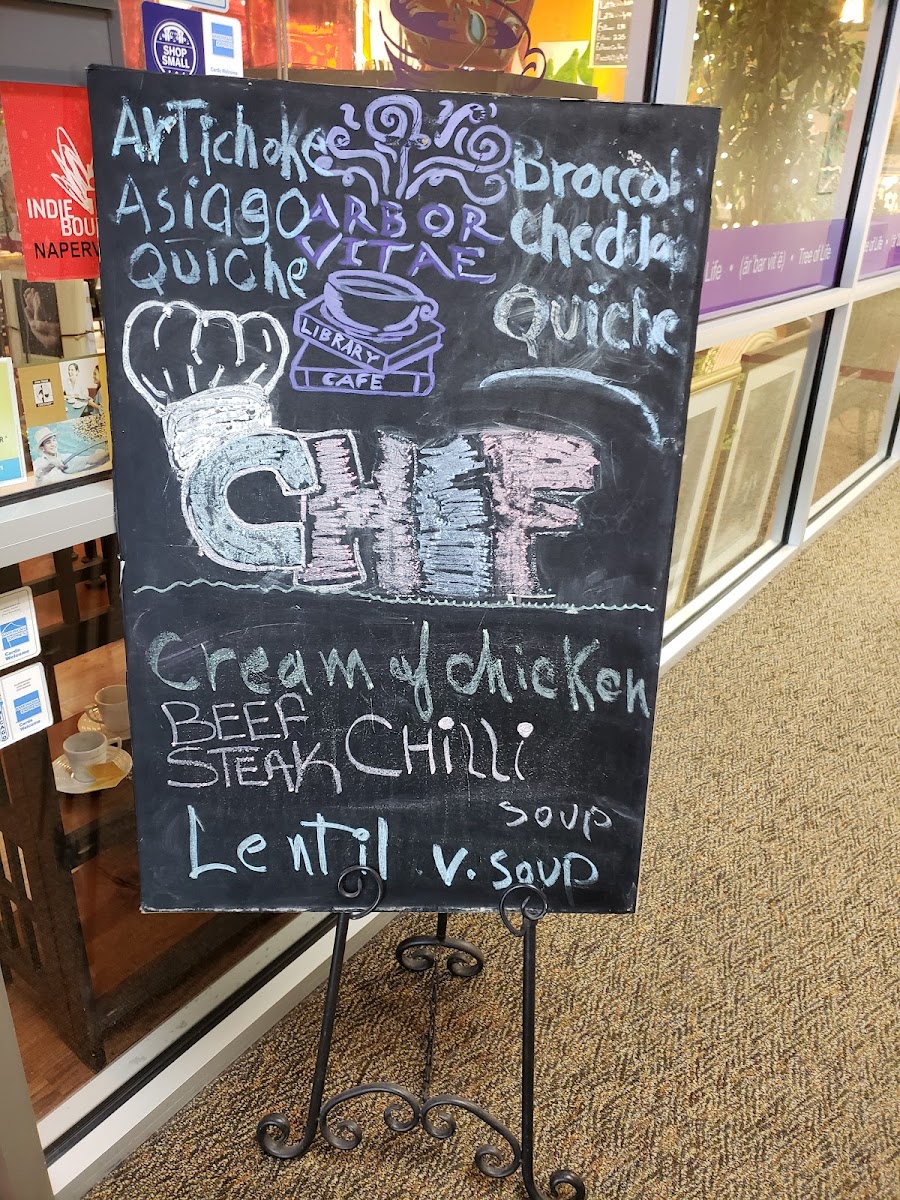 SHOP
SMALL
INDIE
BOU
NAPERV
ArTichoke
Asiago
Quiche
ARBOR
VITAE
LIBRARY
CAFE
Broccoli
Cheddar
Quiche
Life • (är'bər vīt'ē) • Tree of Life
CHEF
Cream of chicken
BEEF
STEAK CHilli
soup
Lentil v. soup
Cards
Welcome
Cards
Welcome